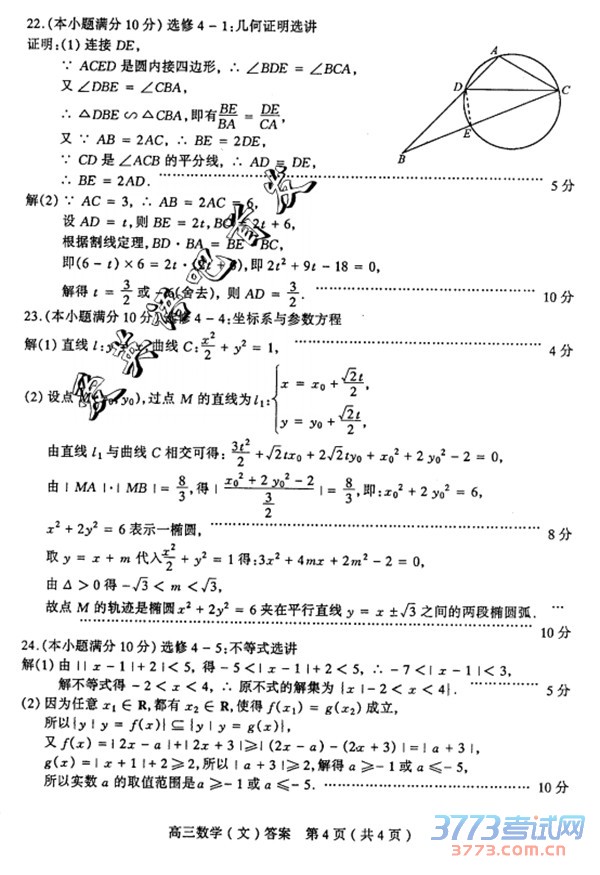 22.(本小题满分10分)选修4-1:几何证明选讲
证明:(1) 连接 DE,
∵ ACED 是圆内接四边形, ∴ ∠BDE = ∠BCA,
又 ∵ ∠DBE = ∠CBA,
∴ △DBE ∽ △CBA, 即有 BE/BA = DE/CA,
又 ∵ AB = 2AC, ∴ BE = 2DE,
∵ CD 是 ∠ACB 的平分线, ∴ AD = DE,
∴ BE = 2AD. 5分
A
D
C
E
B
解(2) ∵ AC = 3, ∴ AB = 2AC = 6,
设 AD = t, 则 BE = 2t, BC = 2t + 6,
根据割线定理, BD · BA = BE · BC,
即(6 - t) × 6 = 2t · (2t + 6), 即 2t² + 9t - 18 = 0,
解得 t = 3/2 或 -6(舍去), 则 AD = 3/2. 10分
23.(本小题满分10分)选修4-4:坐标系与参数方程
解(1) 直线 l: y = x, 曲线 C: x²/2 + y² = 1, 4分
(2) 设点 M(x₀, y₀), 过点 M 的直线为 l₁: { x = x₀ + √2t/2, y = y₀ + √2t/2,
由直线 l₁ 与曲线 C 相交可得: 3t²/2 + √2tx₀ + 2√2ty₀ + x₀² + 2y₀² - 2 = 0,
由 |MA|·|MB| = 8/3, 得 |(x₀² + 2y₀² - 2)/(3/2)| = 8/3, 即: x₀² + 2y₀² = 6,
x² + 2y² = 6 表示一椭圆, 8分
取 y = x + m 代入 x²/2 + y² = 1 得: 3x² + 4mx + 2m² - 2 = 0,
由 Δ > 0 得 -√3 < m < √3,
故点 M 的轨迹是椭圆 x² + 2y² = 6 夹在平行直线 y = x ± √3 之间的两段椭圆弧.
10分
24.(本小题满分10分)选修4-5:不等式选讲
解(1) 由 ||x - 1| + 2| < 5, 得 -5 < |x - 1| + 2 < 5, ∴ -7 < |x - 1| < 3,
解不等式得 -2 < x < 4, ∴ 原不式的解集为 {x | -2 < x < 4}. 5分
(2) 因为任意 x₁ ∈ R, 都有 x₂ ∈ R, 使得 f(x₁) = g(x₂) 成立,
所以{y | y = f(x)} ⊆ {y | y = g(x)},
又 f(x) = |2x - a| + |2x + 3| ≥ |(2x - a) - (2x + 3)| = |a + 3|,
g(x) = |x + 1| + 2 ≥ 2, 所以 |a + 3| ≥ 2, 解得 a ≥ -1 或 a ≤ -5,
所以实数 a 的取值范围是 a ≥ -1 或 a ≤ -5. 10分
高三数学(文)答案 第4页(共4页)
3773考试网
www.3773.com.cn